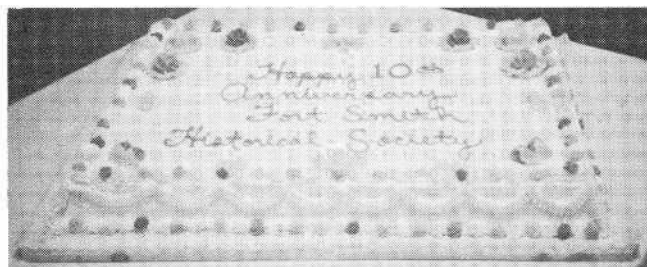 Happy 10th
Anniversary
Fort Smith
Historical Society